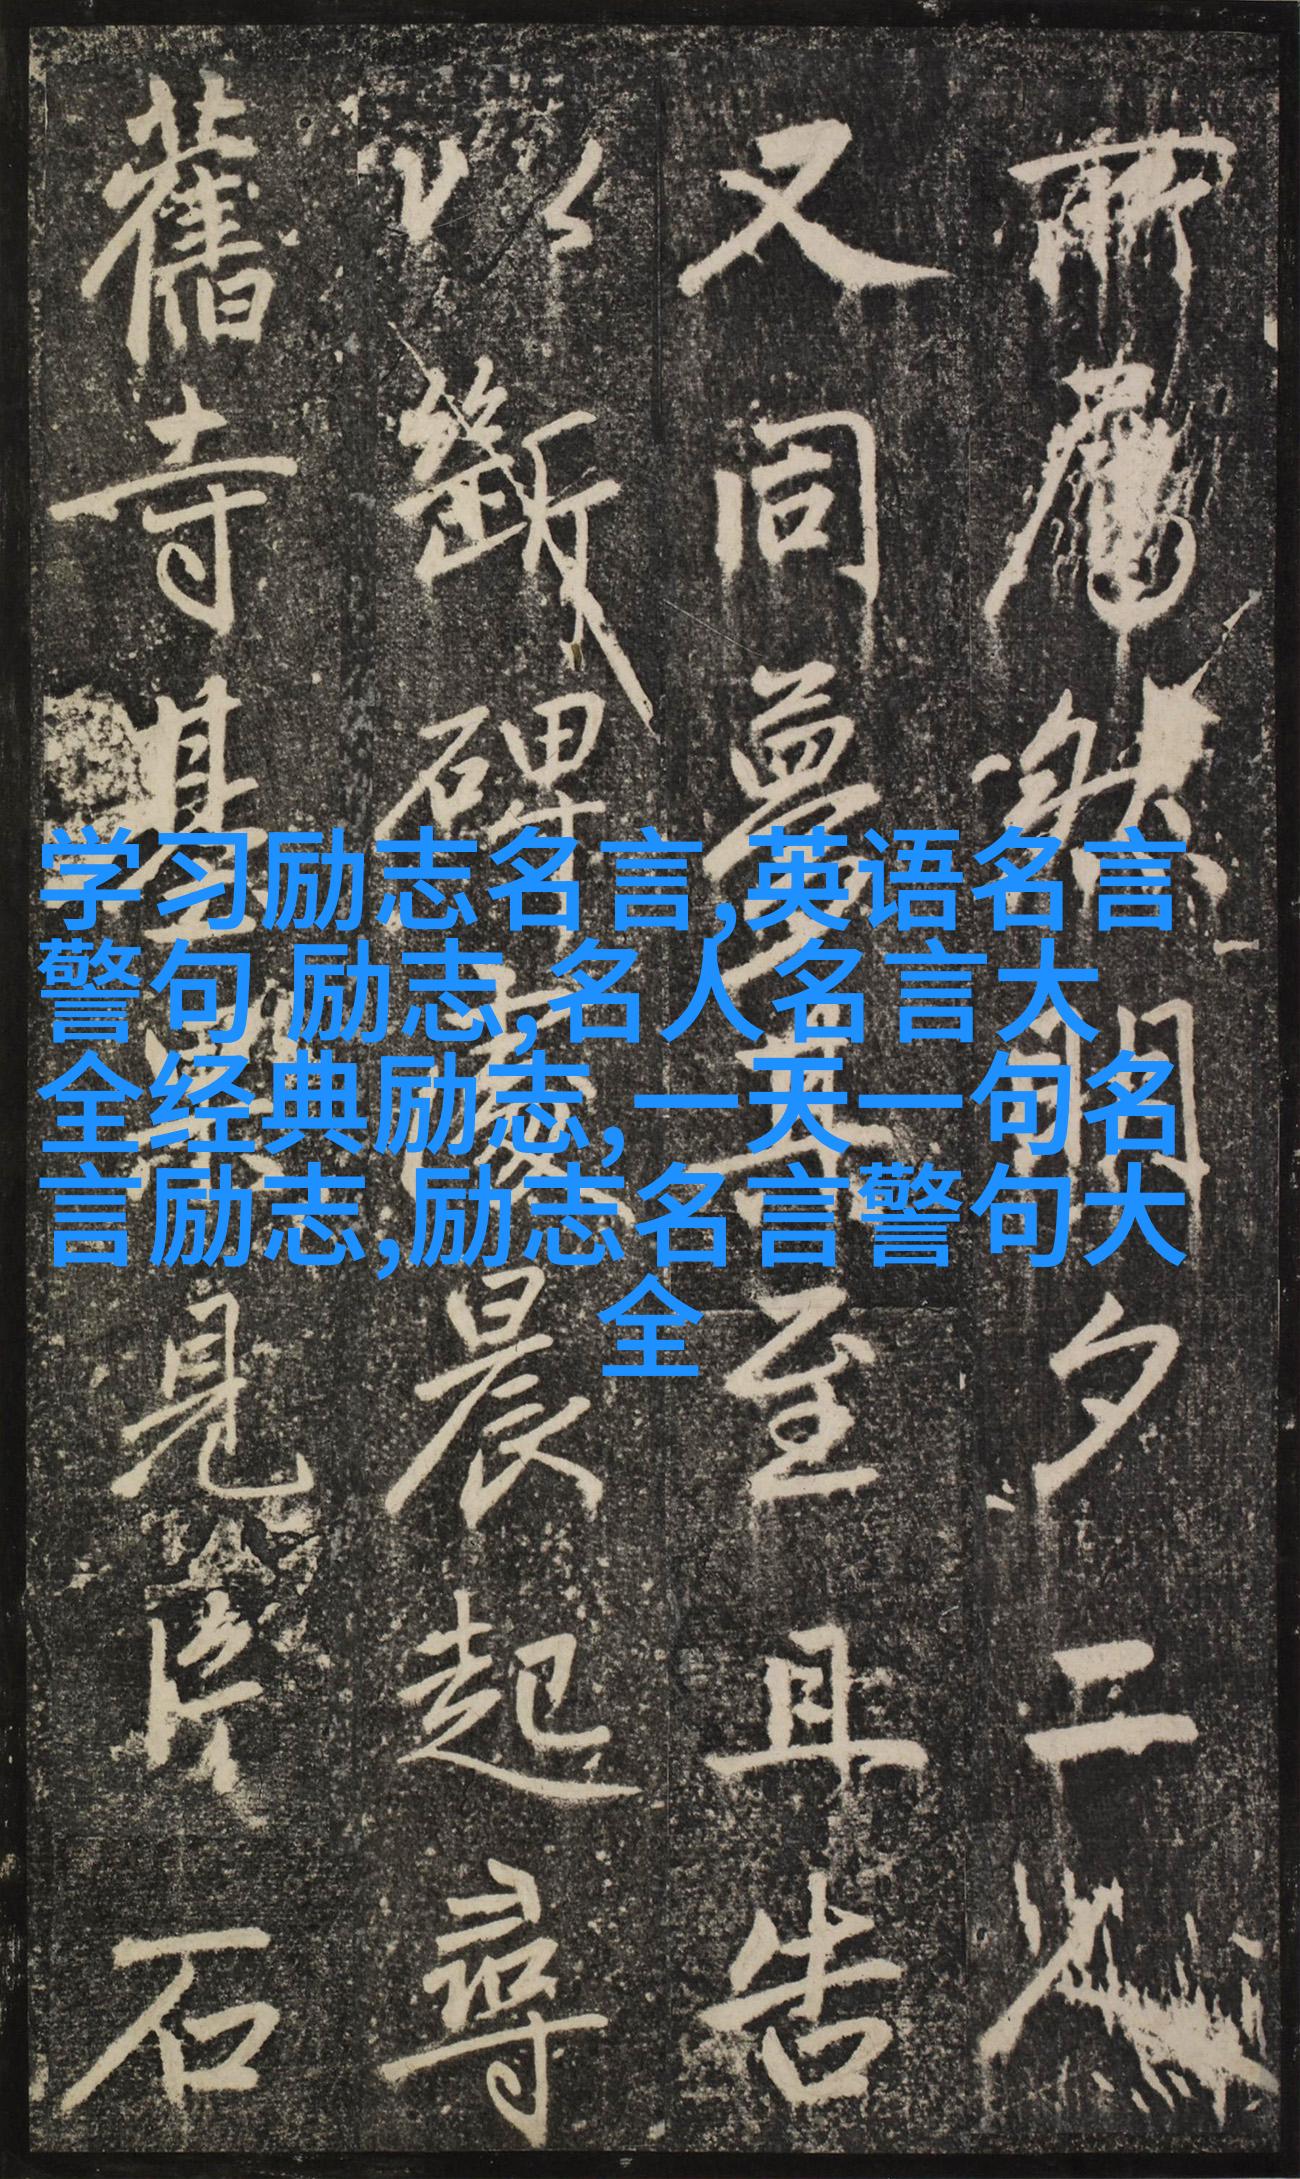 学习励志名言,英语名言
警句 励志,名人名言大
全经典励志, 一天一句名
言励志,励志名言警句大
全
然明夕二
又同夢其至且告
以斷碑處晨起尋
舊寺基果見片石